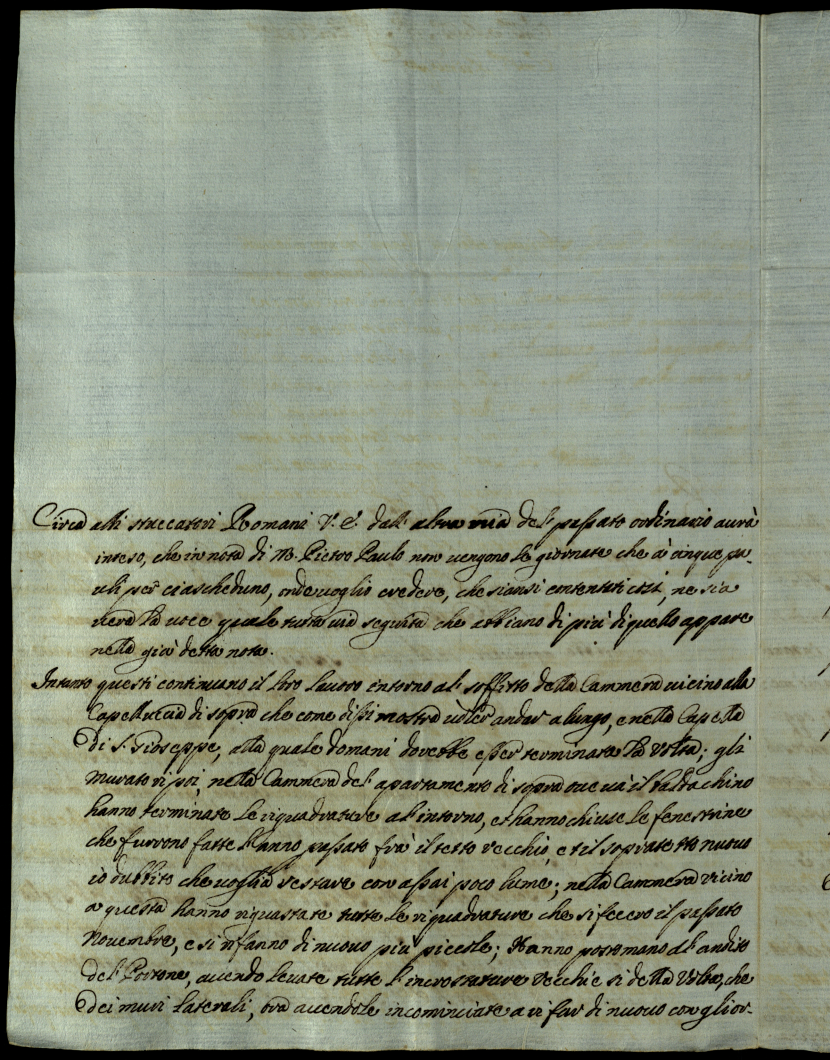 Circa alli stuccatori Romani V. E. dall altra mia del passato ordinario aurà
inteso, che in nota di M. Pietro Paulo non vengono le giornate che à cinque pa-
uli per ciascheduno, onde voglio credere, che siansi contentati così, ne sia
vera la voce quale tutta via seguita che abbiano di più di quello appare
nella già detta nota.
Intanto questi continuano il loro lauoro intorno al soffitto della Cammera uicino alla
Capelluccia di sopra che come dissi mostra uoler andar a lungo, e nella Capella
di S. Gioseppe, alla quale domani dovebbe esser terminata la Volta; gli
muratori poi, nella Cammera del apartamento di sopra oue uà il baldachino
hanno terminate le riquadrature al intorno, et hanno chiuse le fenestrine
che furrono fatte l'anno passato frà il tetto vecchio, et il sopratetto nuouo
io dubbito che uoglia restare con assai poco lume; nella Cammera vicino
a questa hanno riguastate tutte le riquadrature che si fecero il passato
Novembre, e si rifanno di nuouo più piccole; Hanno posto mano al andito
del Portone, auendo leuate tutte l'incrostature vecchie si della Volta, che
dei muri laterali, ora auendole incominciate a rifar di nuouo con gl'ior-